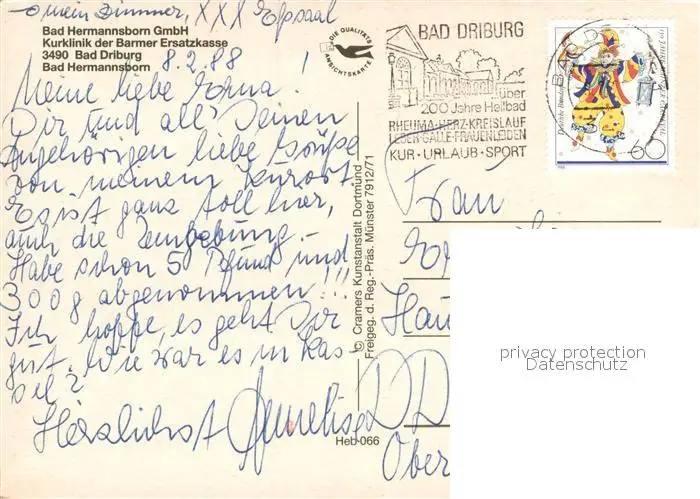 o mein Zimmer, XXX Eßsaal
Bad Hermannsborn GmbH
Kurklinik der Barmer Ersatzkasse
3490 Bad Driburg
Bad Hermannsborn
8.2.88
Meine liebe Erna!
Dir und all' Deinen
Angehörigen liebe Grüße
von meinem Kurort
Es ist ganz toll hier,
auch die Umgebung.
Habe schon 5 Pfund und
300g abgenommen!!!
Ich hoffe, es geht Dir
gut. Wie war es in Kas-
sel?
Herzlichst Annelise
DIE QUALITÄTS
ANSICHTSKARTE
Heb 066
© Cramers Kunstanstalt Dortmund
Freigeg. d. Reg.-Präs. Münster 7912/71
BAD DRIBURG
über
200 Jahre Heilbad
RHEUMA·HERZ·KREISLAUF
LEBER·GALLE·FRAUENLEIDEN
KUR·URLAUB·SPORT
60
Frau
Hau
DD
Ober
privacy protection
Datenschutz